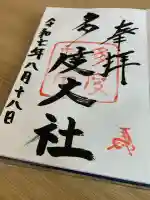 奉拝
多度大社
令和 年八月十八日